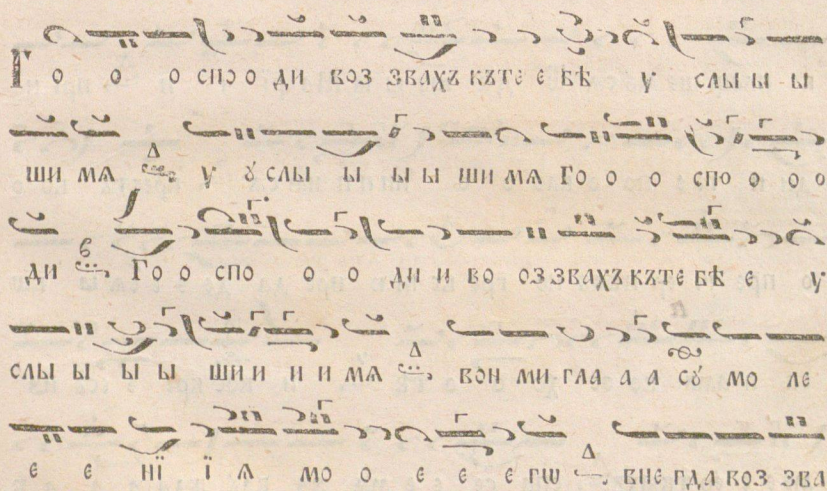 Го о о спо о ди воз звахъ къ те е бѣ у слы ы ы
ши мѧ у ꙋ слы ы ы ы ши мѧ Го о о спо о о о
ди Го о спо о о ди и во оз звахъ къ те бѣ е у
слы ы ы ы ши и и и мѧ вон ми гла а а сꙋ мо ле
е е нї ї ѧ мо о е е е гѡ вне гда воз зва